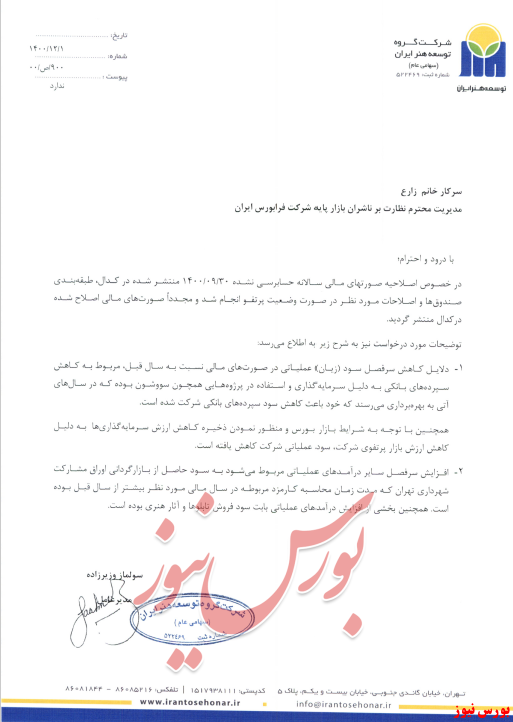 شرکت گروه
توسعه هنر ایران
(سهامی عام)
شماره ثبت: ۵۲۲۴۶۹
توسعه هنر ایران
تاریخ:
۱۴۰۰/۱۲/۱
شماره:
۹۰۰/ص/۰۰
پیوست:
ندارد
سرکار خانم زارع
مدیریت محترم نظارت بر ناشران بازار پایه شرکت فرابورس ایران
با درود و احترام؛
در خصوص اصلاحیه صورتهای مالی سالانه حسابرسی نشده ۱۴۰۰/۰۹/۳۰ منتشر شده در کدال، طبقه‌بندی
صندوق‌ها و اصلاحات مورد نظر در صورت وضعیت پرتفو انجام شد و مجدداً صورت‌های مالی اصلاح شده
درکدال منتشر گردید.
توضیحات مورد درخواست نیز به شرح زیر به اطلاع می‌رسد:
۱- دلایل کاهش سرفصل سود (زیان) عملیاتی در صورت‌های مالی نسبت به سال قبل، مربوط به کاهش
سپرده‌های بانکی به دلیل سرمایه‌گذاری و استفاده در پرژوه‌هایی همچون سووشون بوده که در سال‌های
آتی به بهره‌برداری می‌رسند که خود باعث کاهش سود سپرده‌های بانکی شرکت شده است.
همچنین با توجه به شرایط بازار بورس و منظور نمودن ذخیره کاهش ارزش سرمایه‌گذاری‌ها به دلیل
کاهش ارزش بازار پرتفوی شرکت، سود عملیاتی شرکت کاهش یافته است.
۲- افزایش سرفصل سایر درآمدهای عملیاتی مربوط می‌شود به سود حاصل از بازارگردانی اوراق مشارکت
شهرداری تهران که مدت زمان محاسبه کارمزد مربوطه در سال مالی مورد نظر بیشتر از سال قبل بوده
است. همچنین بخشی از افزایش درآمدهای عملیاتی بابت سود فروش تابلوها و آثار هنری بوده است.
بورس نیوز
سولماز وزیرزاده
مدیرعامل
شرکت گروه توسعه هنر ایران
(سهامی عام)
شماره ثبت ۵۲۲۴۶۹
تهران، خیابان گاندی جنوبی، خیابان بیست و یکم، پلاک ۵ کدپستی: ۱۵۱۷۹۳۸۱۱۱ ۸۶۰۸۵۲۱۶ - ۸۶۰۸۱۸۴۴
www.irantosehonar.ir info@irantosehonar.ir
بورس نیوز